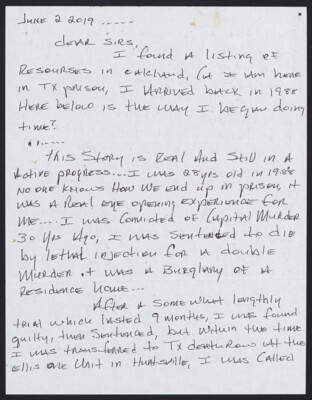 JUNE 2 2019 .....
DEAR SIRS,
I found A listing of
Resourses in oakland, CA I Am here
in TX prison, I ARRived back in 1988
Here below is the way I began doing
time?
......
This Story is Real And Still in A
Active progress... I was 28 yrs old in 1988
No one knows How we end up in prison, it
was A Real eye opening experience for
me.... I was Convicted of Capital Murder
30 Yrs Ago, I was Sentenced to die
by lethal injection for A double
Murder. it was A Burglary of A
Residence home...
After A Some what lengthly
trial which lasted 9 months, I was found
guilty, then Sentenced, but within the time
I was transferred to TX deathrow At the
Ellis one Unit in Huntsville, I was Called